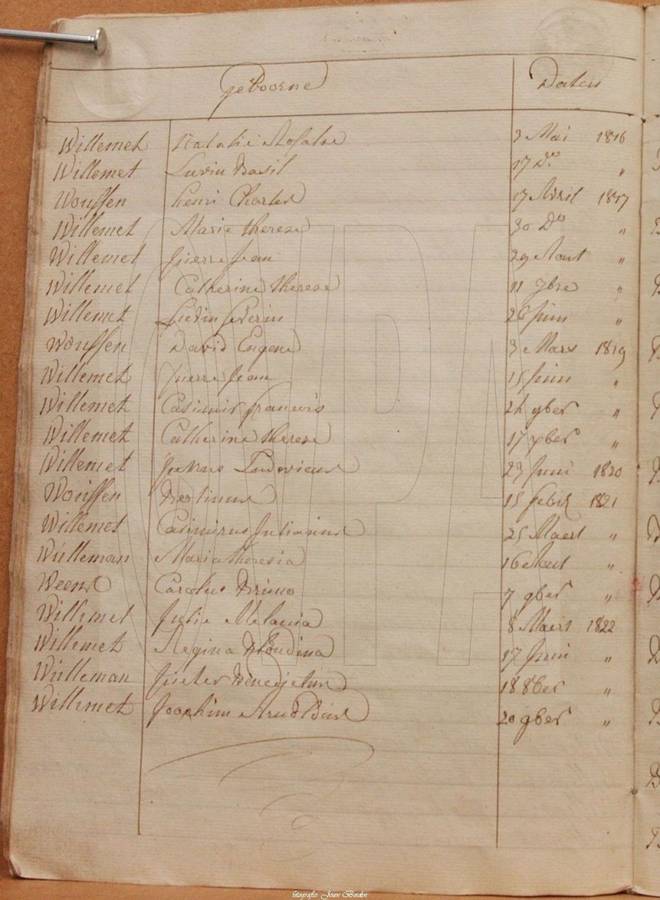 Geboorne Daten
Willemet Natalie Rosalie 3 Mai 1816
Willemet Livin Basil 17 Do "
Wouffen Henri Charles 17 Avril 1817
Willemet Marie Therese 30 Do "
Willemet Pierre Jean 29 Aout "
Willemet Catherine Therese 11 7bre "
Willemet Livin Severin 26 Juin "
Wouffen David Eugene 3 Mars 1819
Willemet Pierre Jean 15 Juin "
Willemet Casimir francois 24 9ber "
Willemet Catherine Therese 17 7ber "
Willemet Ludovicus 29 Juni 1820
Wouffen 15 febr 1821
Willemet Casimirus Julianus 25 Maert "
Wulleman Maria theresia 16 "
Weens Carolus Bruno 7 9ber "
Willemet Julie Melania 8 Maert 1822
Willemet Regina Blondina 17 Juin "
Wulleman Pieter Benedictus 18 8ber "
Willemet Joachim 20 9ber "